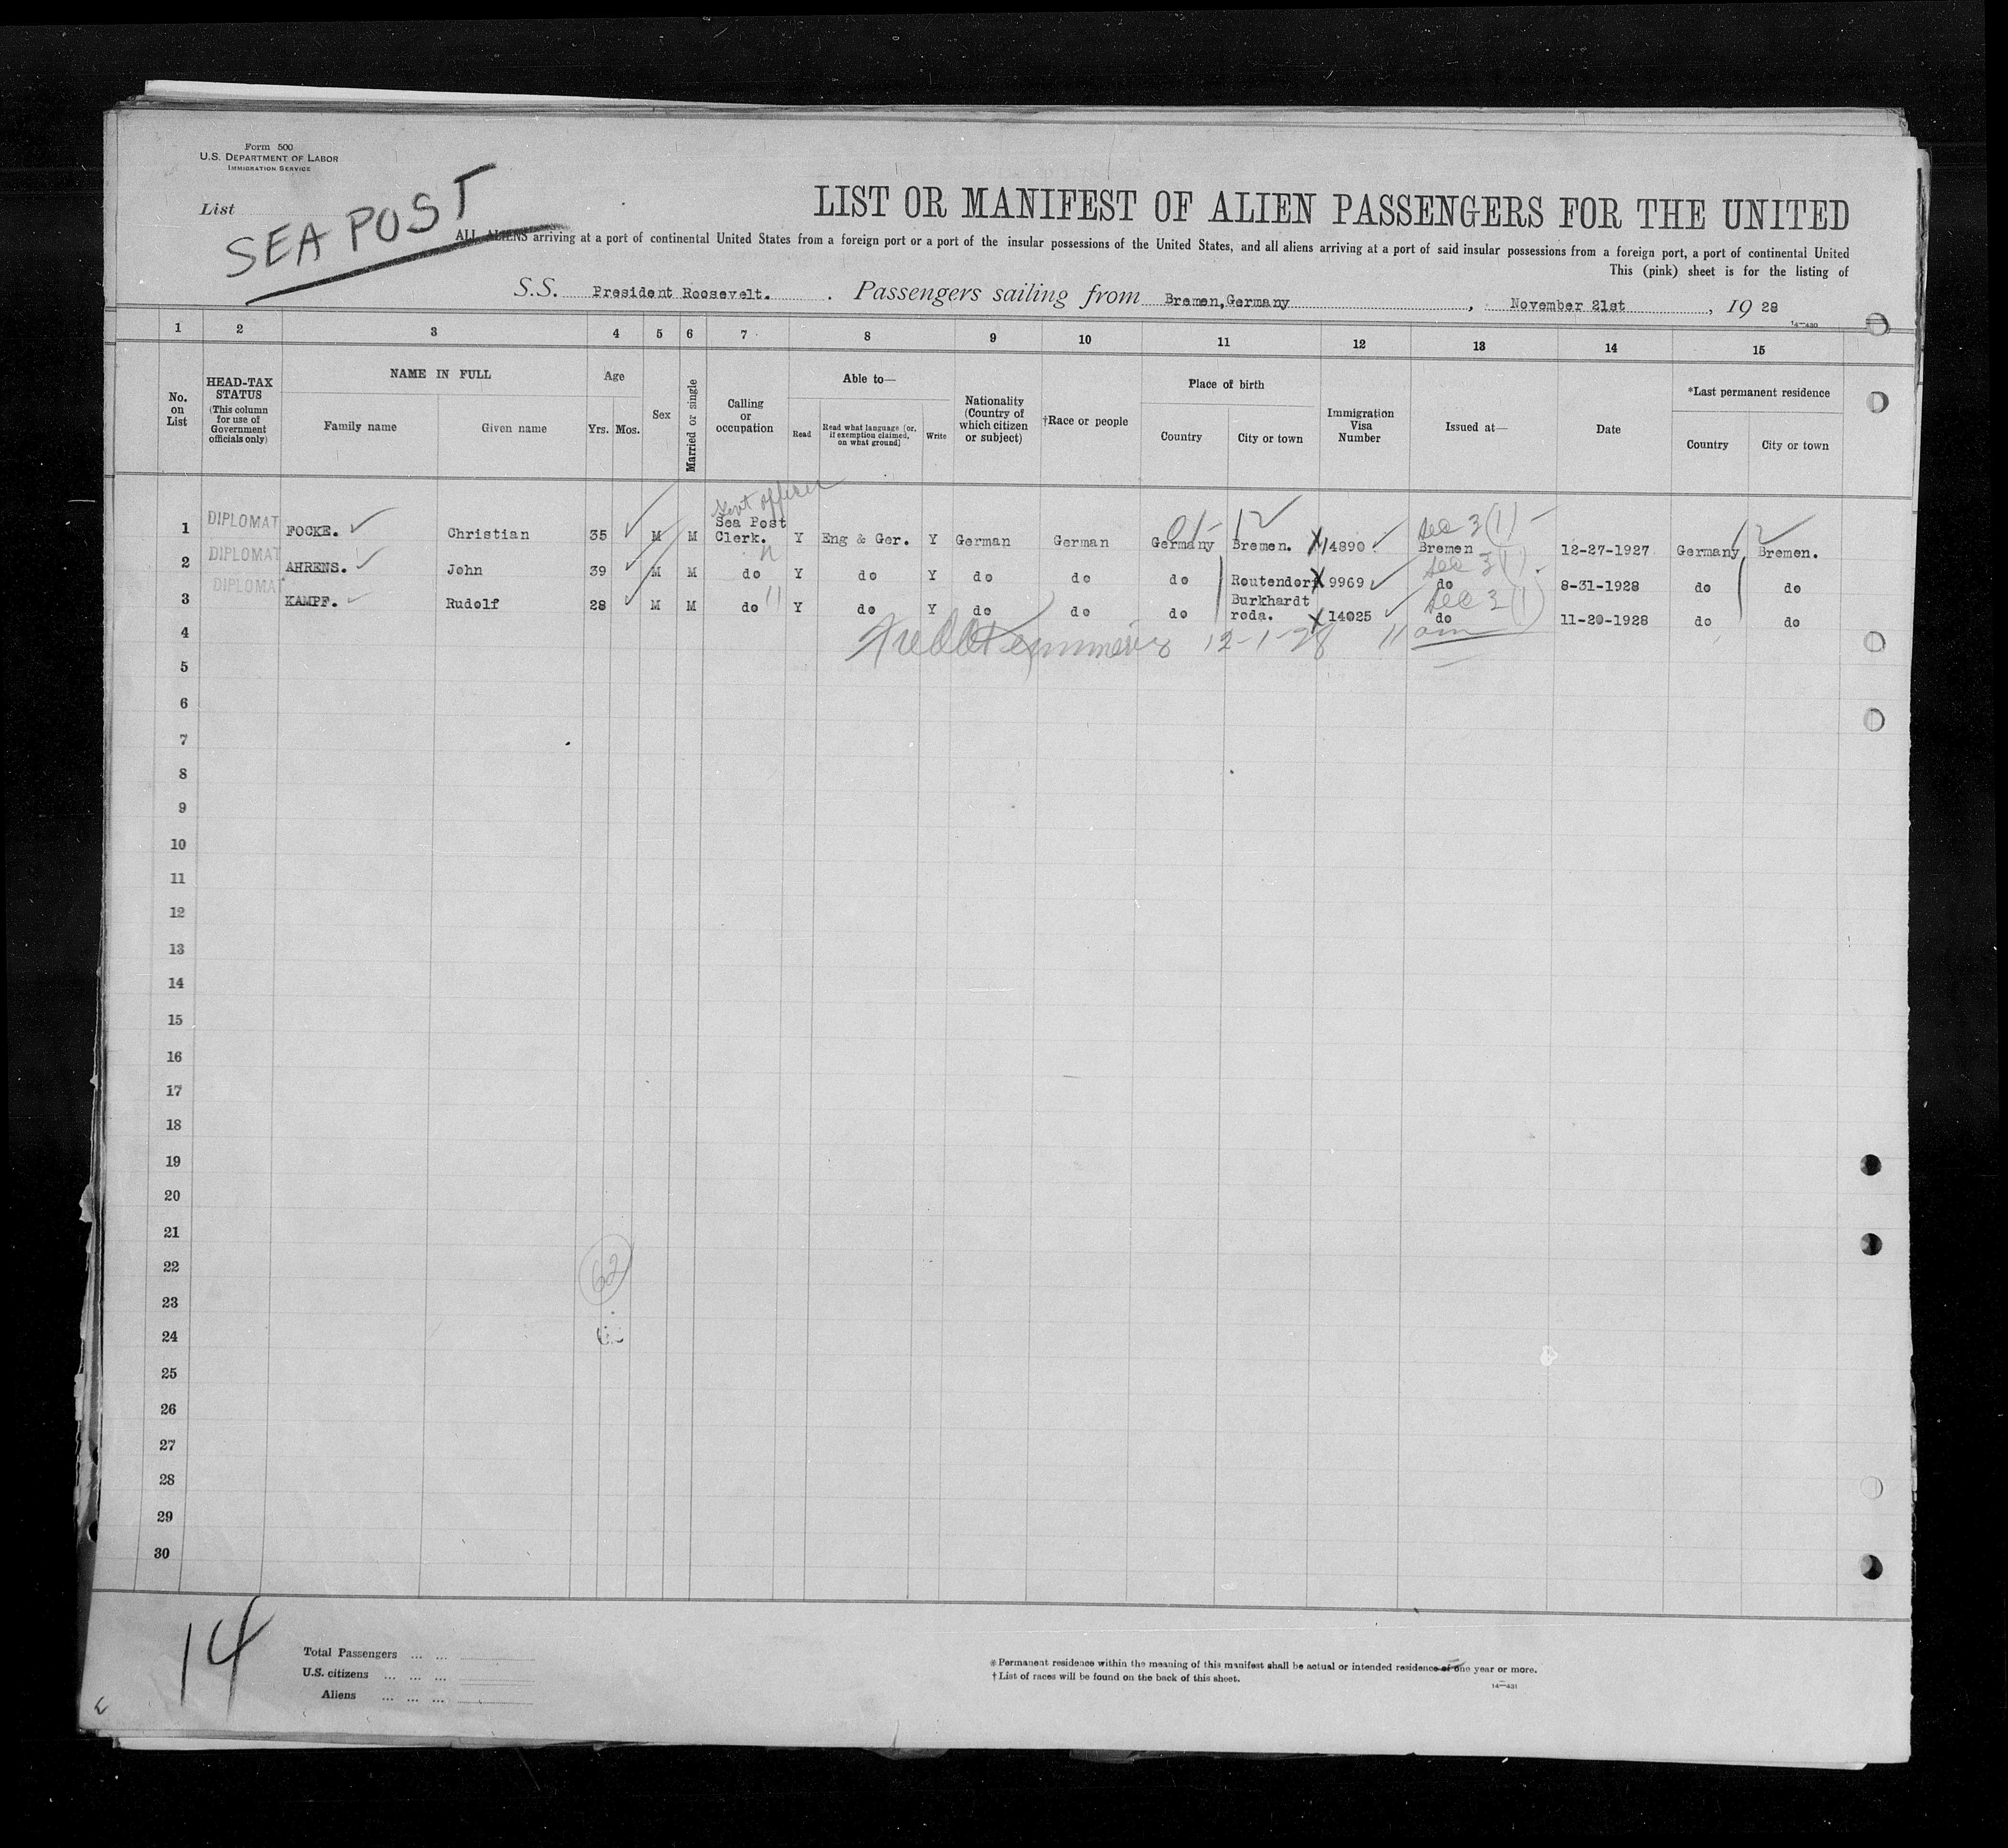 Form 500
U.S. DEPARTMENT OF LABOR
IMMIGRATION SERVICE
List
SEA POST
LIST OR MANIFEST OF ALIEN PASSENGERS FOR THE UNITED
ALL ALIENS arriving at a port of continental United States from a foreign port or a port of the insular possessions of the United States, and all aliens arriving at a port of said insular possessions from a foreign port, a port of continental United
This (pink) sheet is for the listing of
S.S. President Roosevelt. Passengers sailing from Bremen, Germany, November 21st, 19 28
14—430
1 2 3 4 5 6 7 8 9 10 11 12 13 14 15
No. on List
HEAD-TAX STATUS (This column for use of Government officials only)
NAME IN FULL
Family name Given name
Age
Yrs. Mos.
Sex
Married or single
Calling or occupation
Able to—
Read
Read what language [or, if exemption claimed, on what ground]
Write
Nationality (Country of which citizen or subject)
†Race or people
Place of birth
Country City or town
Immigration Visa Number
Issued at—
Date
*Last permanent residence
Country City or town
Govt officer
Sec 3(1)
1 DIPLOMAT FOCKE. Christian 35 M M Sea Post Clerk. Y Eng & Ger. Y German German Germany Bremen. 4890 Bremen 12-27-1927 Germany Bremen.
Sec 3(1)
2 DIPLOMAT AHRENS. John 39 M M do Y do Y do do do Routendorf 9969 do 8-31-1928 do do
Sec 3(1)
3 DIPLOMAT KAMPF. Rudolf 28 M M do Y do Y do do do Burkhardt roda. 14025 do 11-20-1928 do do
4 12-1-28 11 am
5
6
7
8
9
10
11
12
13
14
15
16
17
18
19
20
21
22
62
23
24
25
26
27
28
29
30
14
Total Passengers ... ...
U.S. citizens ... ... ...
Aliens ... ... ...
*Permanent residence within the meaning of this manifest shall be actual or intended residence of one year or more.
†List of races will be found on the back of this sheet.
14—431